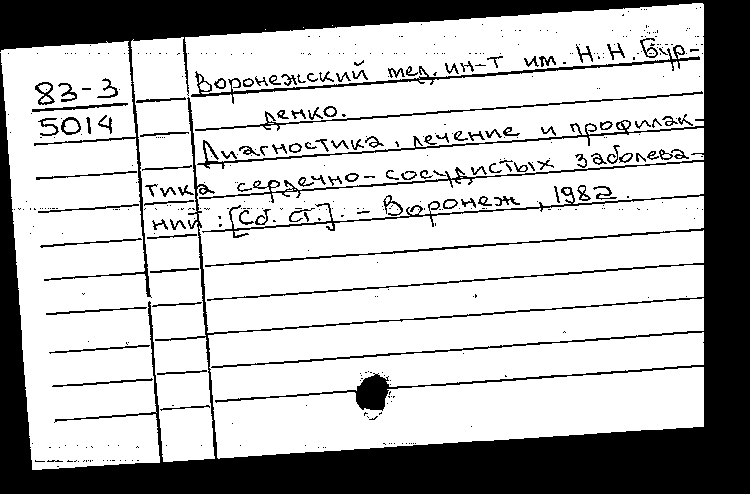 83-3
5014
Воронежский мед. ин-т им. Н. Н. Бур-
денко.
Диагностика, лечение и профилак-
тика сердечно-сосудистых заболева-
ний : [Сб. ст.]. - Воронеж, 1982.